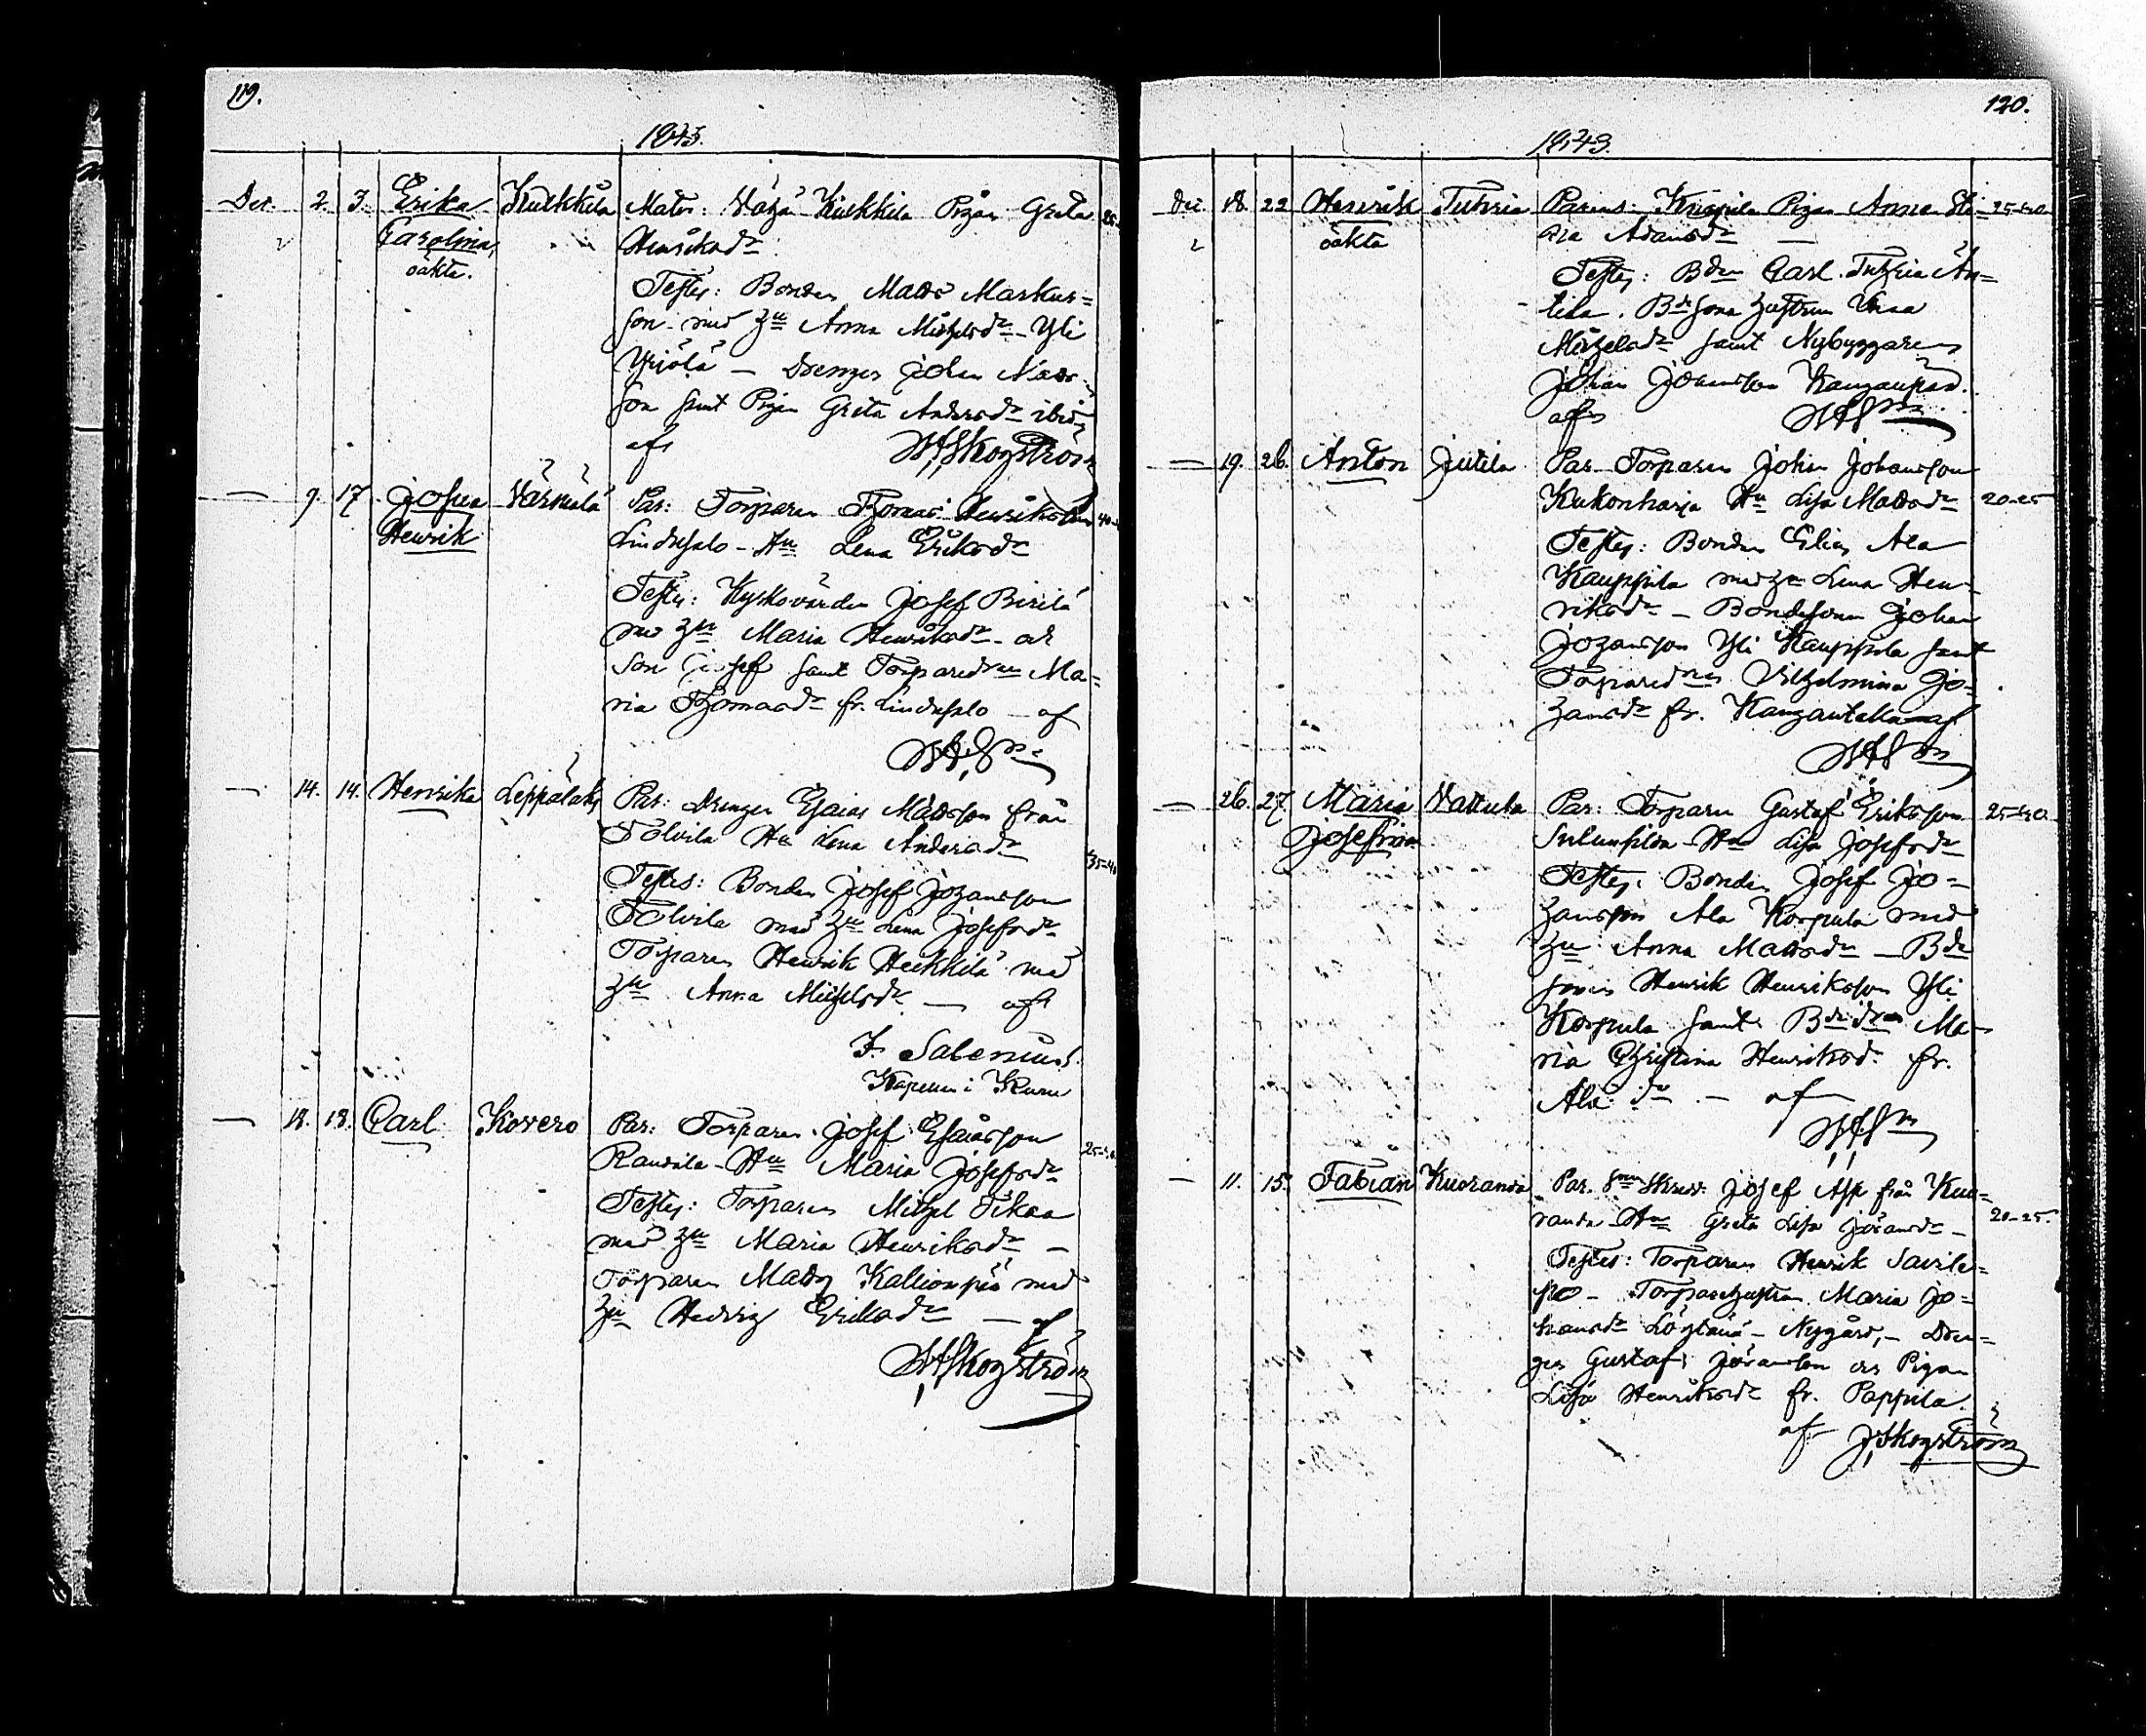 119.
1843.
Dec. 2. 3. Erika Kulkkila Mater: Kulkkila Pigan Greta
Carolina, Henriksdr
oäkta. Testes: Bonden Matts Markus=
son med hu Anna Michelsdr Yli
Yrjölä — Drengen Johan
son samt Pigan Greta Andersdr ibid
af WASkogström
— 9. 17. Josua Värmälä Par: Torparen Thomas Henriksson
Henrik Lindusalo - Hu Lena Eriksdr
Testes: Kyrkovärden Josef Pirilä
med hu Maria Henriksdr och
Son Josef samt Torparedren Ma=
ria Thomasdr fr. Lindusalo — af
WASm
— 14. 14. Henrika Leppälaks Par: Drengen Esaias Mattsson från
Tolvila Hu Lena Andersdr 35-40
Testes: Bonden Josef Johansson
Tolvila med hu Lena Josefsdr
Torparen Henrik Heikkilä med
hu Anna Michelsdr — af
F. Salenius.
Kapellan i Kuru
— 18. 18. Carl Kovero Par: Torparen Josef Esaiasson
Rautila - Hu Maria Josefsdr 25-
Testes: Torparen Michel
med hu Maria Henriksdr —
Torparen Matts Kallionpää med
hu Hedvig Eriksdr — af
WASkogström
120.
1843.
Dec. 18. 22 Henrik Tuhria Parens: Knuspila Pigan Anna Sti= 25-40
oäkta na Adamsdr —
Testes: Bden Carl Tuhria An=
tila. Bdesona hustrun
Michelsdr samt Nybyggaren
Johan Johansson
af WASm
— 19. 26. Anton Jutila Par. Torparen Johan Johansson
Kukonharja Hu Lisa Mattsdr 20-25
Testes: Bonden Elias Ala
Kauppila med hu Lena Hen=
riksdr — Bondesonen Johan
Johansson Yli Kauppila samt
Torparedren Vilhelmina Jo=
hansdr fr. af
WASm
— 26. 27. Maria Vattula Par: Torparen Gustaf Eriksson 25-40
Josefina Hu Lisa Josefsdr
Testes: Bonden Josef Jo=
hansson Ala Korpula med
hu Anna Mattsdr — Bde
sonen Henrik Henriksson Yli
Korpula samt Bdedren Ma=
ria Christina Henriksdr fr.
Ala do — af
WASm
— 11. 15. Fabian Kuoranda Par. Josef Asp från Kuo=
randa - Hu Greta Lisa Göransdr — 20-25.
Testes: Torparen Henrik Savile=
po - Torparehustrun Maria Jo=
hansdr Löytänä - Nygård, - Dren=
gen Gustaf Göransson och Pigan
Lisa Henriksdr fr. Pappila.
af JSkogström